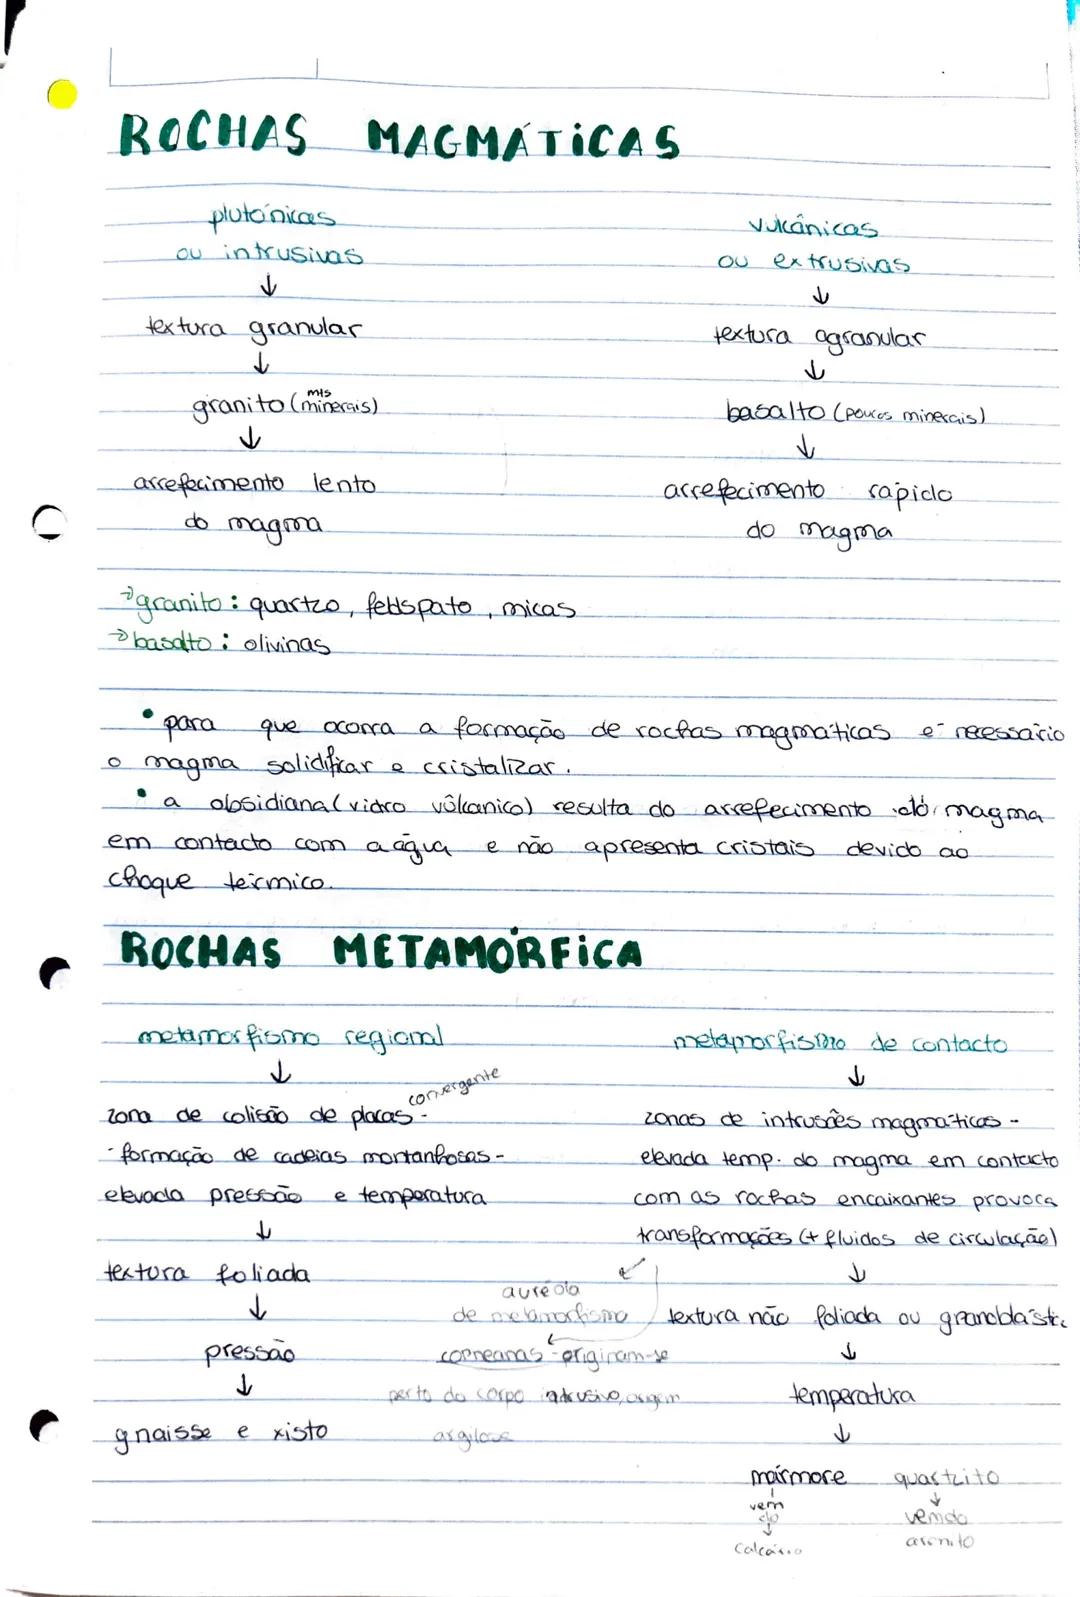 ROCHAS MAGMÁTICAS
plutónicas
ou intrusivas
↓
textura granular
↓
granito (mts minerais)
↓
arrefecimento lento
do magma
vulcânicas
ou extrusivas
↓
textura agranular
↓
basalto (poucos minerais)
↓
arrefecimento rápido
do magma
→granito: quartzo, feldspato, micas
→basalto: olivinas
• para que ocorra a formação de rochas magmáticas é necessário
o magma solidificar e cristalizar.
• a obsidiana (vidro vûlcanico) resulta do arrefecimento do magma
em contacto com a água e não apresenta cristais devido ao
choque térmico.
ROCHAS METAMÓRFICA
metamorfismo regional
↓
convergente
zona de colisão de placas -
- formação de cadeias montanhosas -
elevada pressão e temperatura
↓
textura foliada
↓
pressão
↓
gnaisse e xisto
metamorfismo de contacto
↓
zonas de intrusões magmáticas -
elevada temp. do magma em contacto
com as rochas encaixantes provoca
transformações (+ fluidos de circulação)
↓
textura não foliada ou granoblástic
↓
temperatura
↓
mármore quartzito
vem do ↓ calcário
↓ vem do arenito
auréola
de metamorfismo
corneanas - originam-se
perto do corpo intrusivo, origem
argilosa